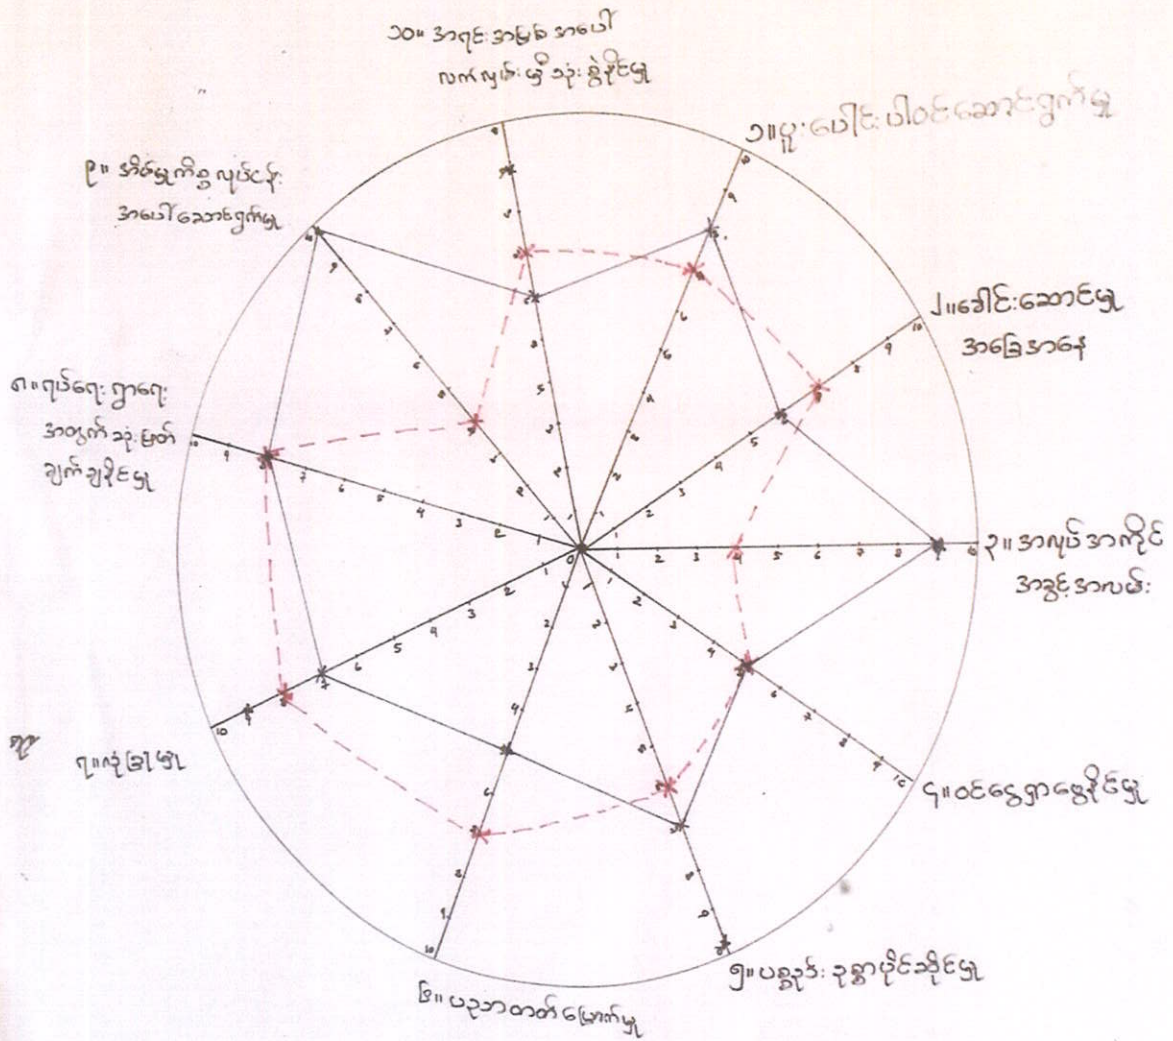 ၁၀။ အရင်းအမြစ်အပေါ်
လက်လှမ်းမှီသုံးစွဲနိုင်မှု
၁။ ပူးပေါင်းပါဝင်ဆောင်ရွက်မှု
၂။ ခေါင်းဆောင်မှု
အခြေအနေ
၃။ အလုပ်အကိုင်
အခွင့်အလမ်း
၄။ ဝင်ငွေရှာဖွေနိုင်မှု
၅။ ပစ္စည်းဥစ္စာပိုင်ဆိုင်မှု
၆။ ပညာတတ်မြောက်မှု
၇။ လုံခြုံမှု
၈။ ရပ်ရေးရွာရေး
အတွက်ဆုံးဖြတ်
ချက်ချနိုင်မှု
၉။ အိမ်မှုကိစ္စလုပ်ငန်း
အပေါ်ဆောင်ရွက်မှု
0 1 2 3 4 5 6 7 8 9 10